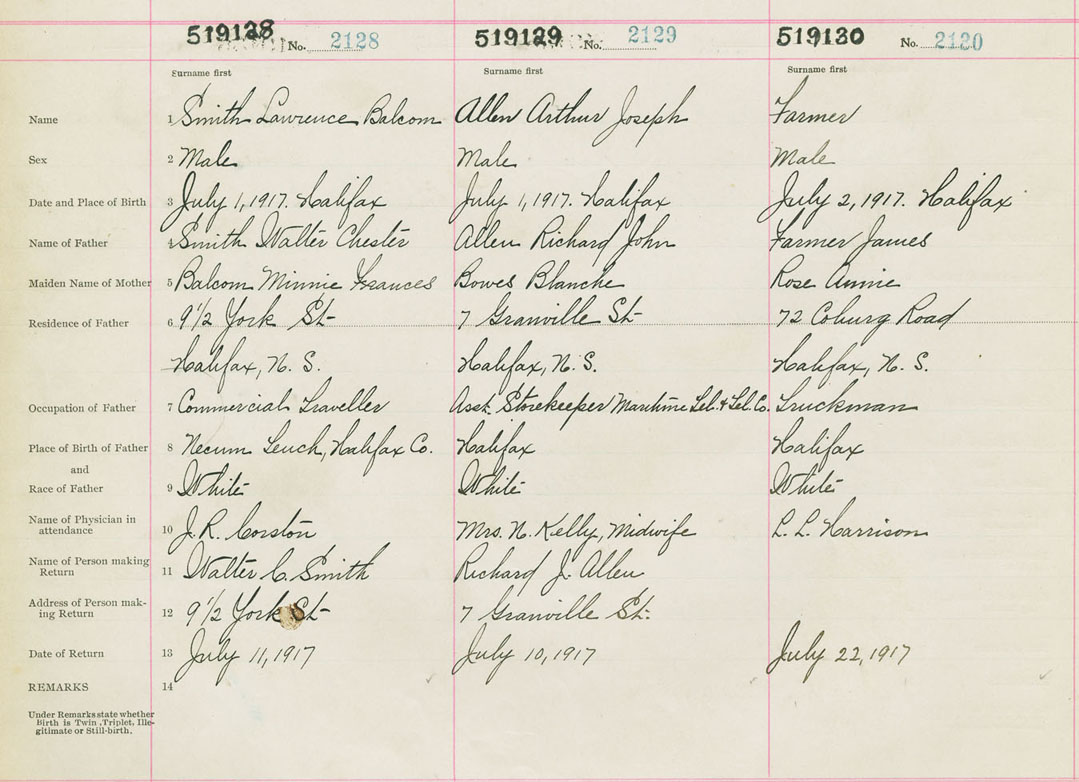 519128 No. 2128
519129 No. 2129
519130 No. 2130
Surname first Surname first Surname first
Name 1 Smith Lawrence Balcom Allen Arthur Joseph Farmer
Sex 2 Male Male Male
Date and Place of Birth 3 July 1, 1917. Halifax July 1, 1917. Halifax July 2, 1917. Halifax
Name of Father 4 Smith Walter Chester Allen Richard John Farmer James
Maiden Name of Mother 5 Balcom Minnie Frances Bowes Blanche Rose Annie
Residence of Father 6 9 1/2 York St 7 Granville St 72 Coburg Road
Halifax, N. S. Halifax, N. S. Halifax, N. S.
Occupation of Father 7 Commercial Traveller Asst. Storekeeper Maritime Tel. & Tel. Co. Truckman
Place of Birth of Father 8 Necum Teuch, Halifax Co. Halifax Halifax
and
Race of Father 9 White White White
Name of Physician in
attendance 10 J. R. Corston Mrs. N. Kelly, Midwife L. L. Harrison
Name of Person making
Return 11 Walter C. Smith Richard J. Allen
Address of Person mak-
ing Return 12 9 1/2 York St 7 Granville St.
Date of Return 13 July 11, 1917 July 10, 1917 July 22, 1917
REMARKS 14
Under Remarks state whether
Birth is Twin, Triplet, Ille-
gitimate or Still-birth.